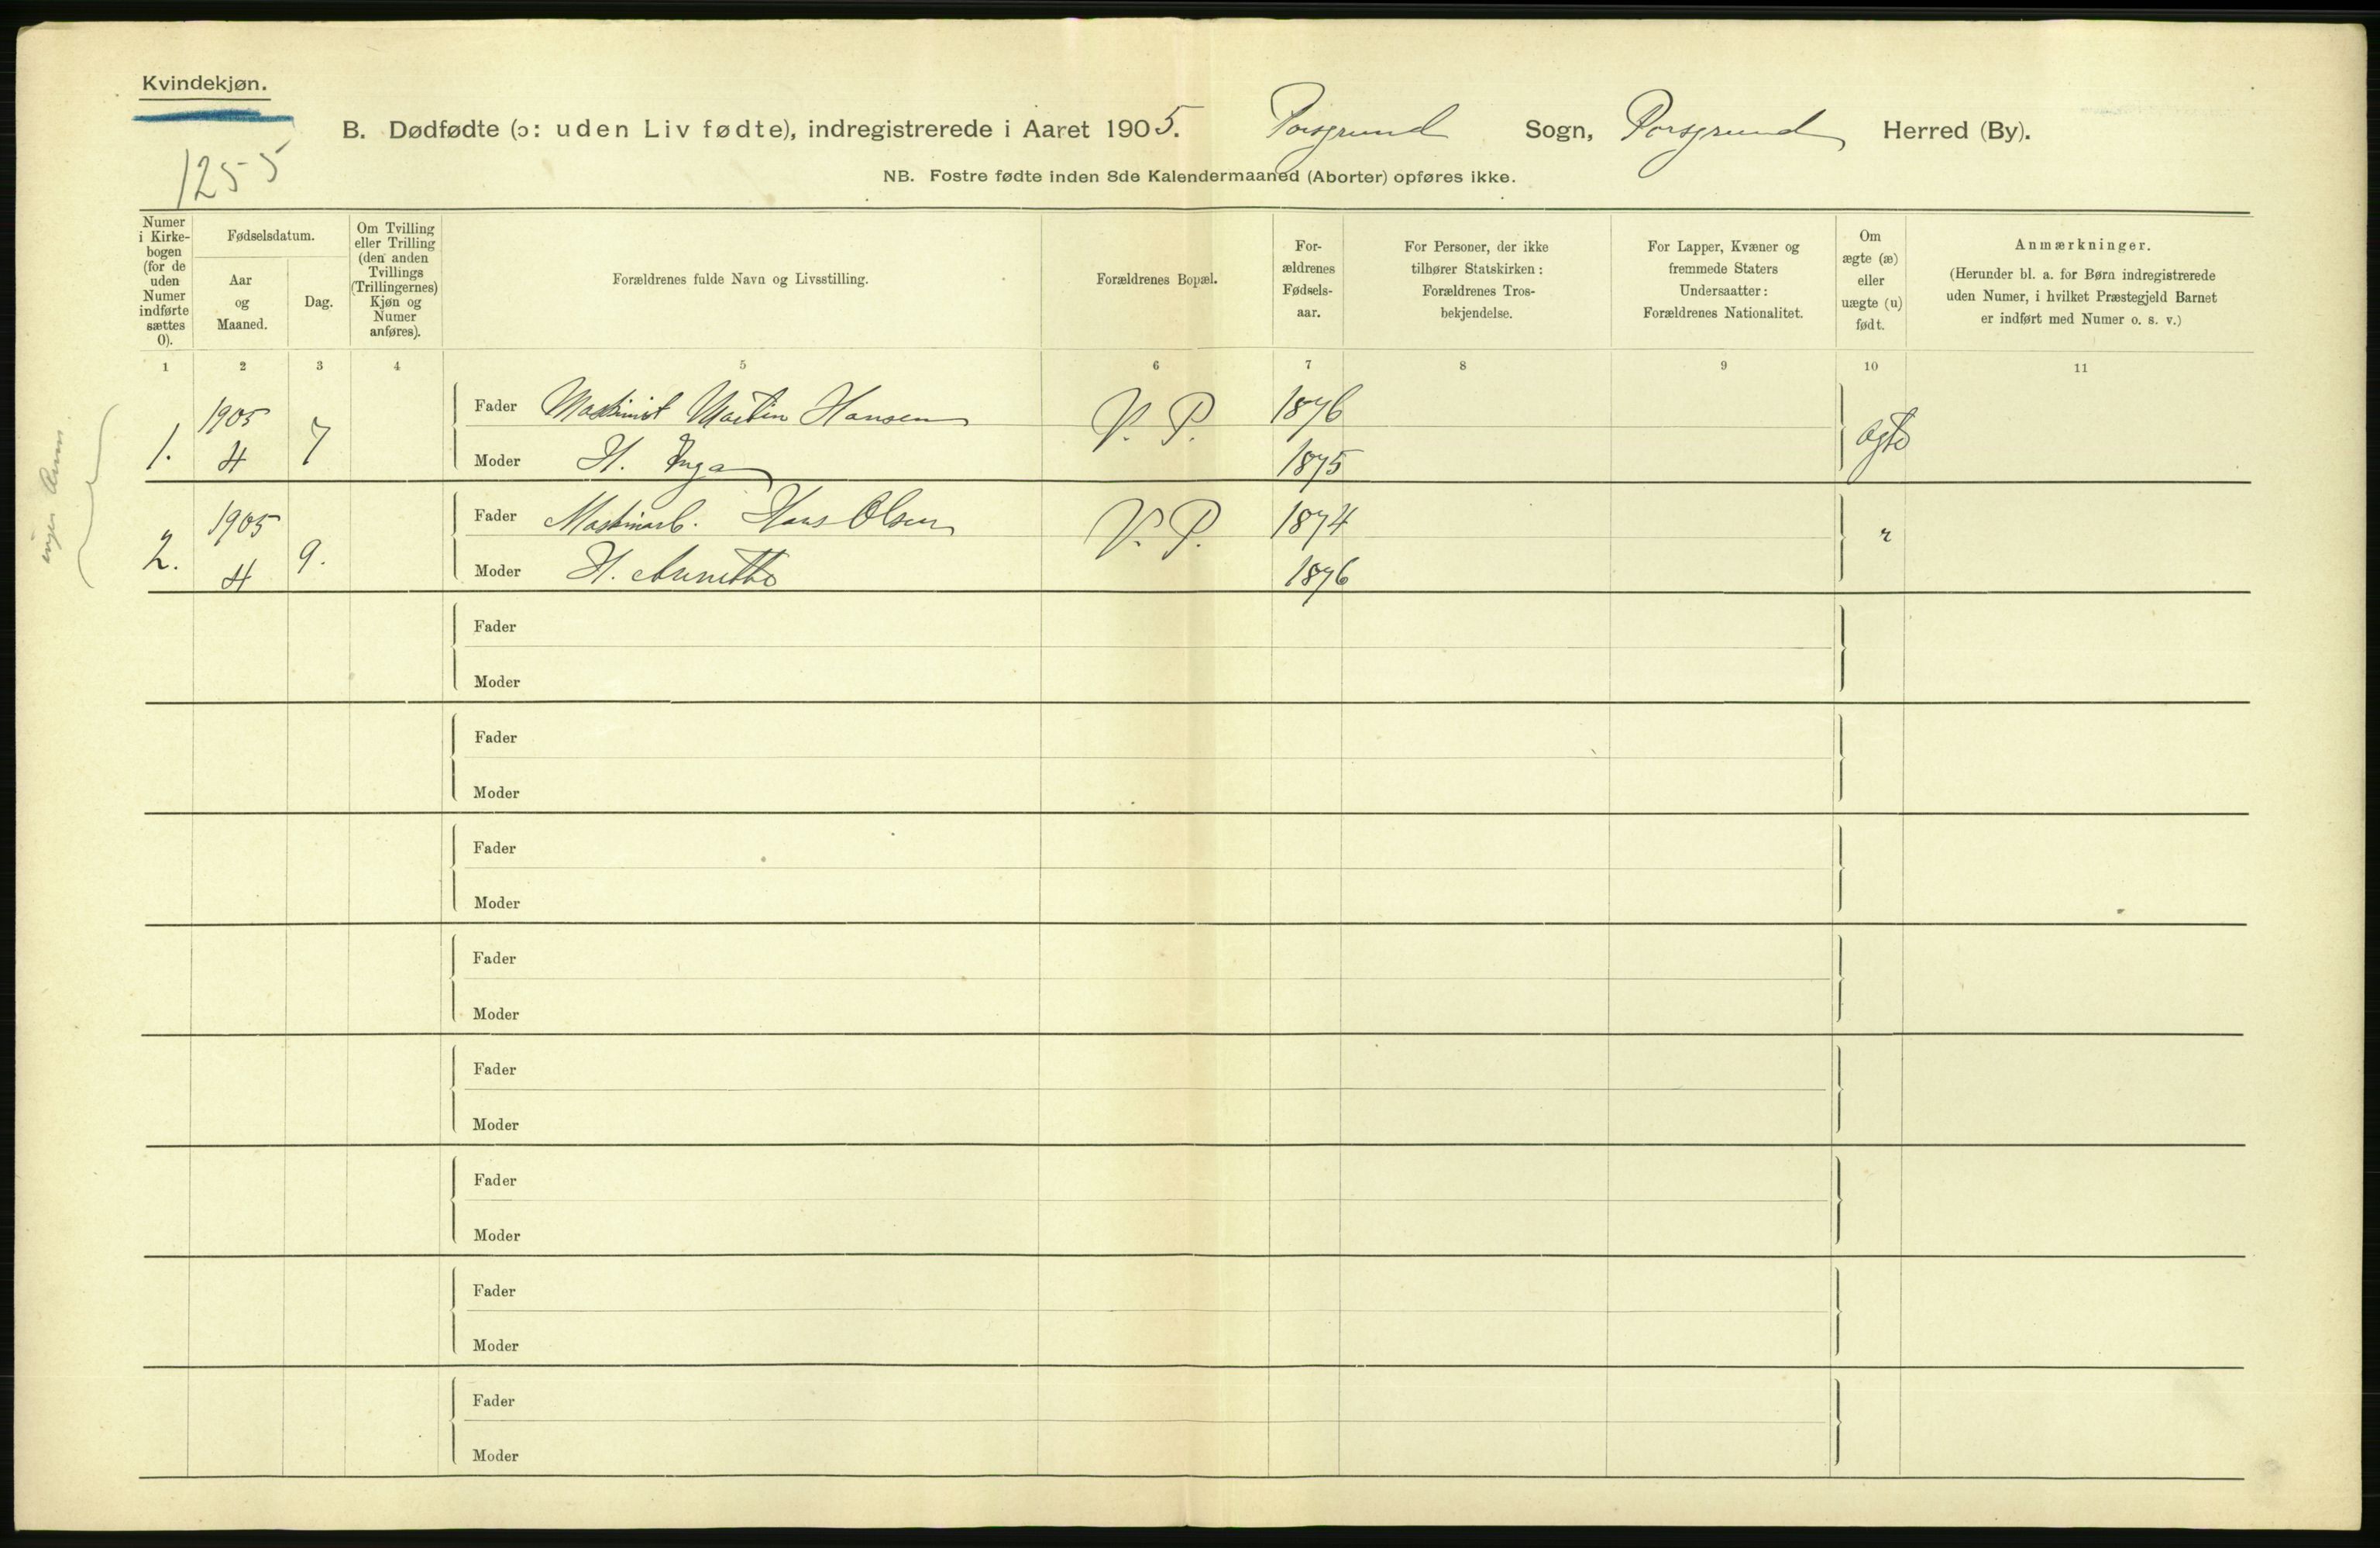 Kvindekjøn.
1255
B. Dødfødte (ɔ: uden Liv fødte), indregistrerede i Aaret 1905. Porsgrund Sogn, Porsgrund Herred (By).
NB. Fostre fødte inden 8de Kalendermaaned (Aborter) opføres ikke.
Numer i Kirke-bogen (for de uden Numer indførte sættes 0).
Fødselsdatum.
Aar og Maaned.
Dag.
Om Tvilling eller Trilling (den anden Tvillings (Trillingernes) Kjøn og Numer anføres).
Forældrenes fulde Navn og Livsstilling.
Forældrenes Bopæl.
For-ældrenes Fødsels-aar.
For Personer, der ikke tilhører Statskirken: Forældrenes Tros-bekjendelse.
For Lapper, Kvæner og fremmede Staters Undersaatter: Forældrenes Nationalitet.
Om ægte (æ) eller uægte (u) født.
Anmærkninger.
(Herunder bl. a. for Børn indregistrerede uden Numer, i hvilket Præstegjeld Barnet er indført med Numer o. s. v.)
1 2 3 4 5 6 7 8 9 10 11
1. 1905 4 7 Fader Maskinist Martin Hansen V. P. 1876 ægte
Moder H. Inga 1875
2. 1905 4 9. Fader Maskinarb. Hans Olsen V. P. 1874 "
Moder H. Annette 1876
Fader
Moder
Fader
Moder
Fader
Moder
Fader
Moder
Fader
Moder
Fader
Moder
Fader
Moder
Fader
Moder